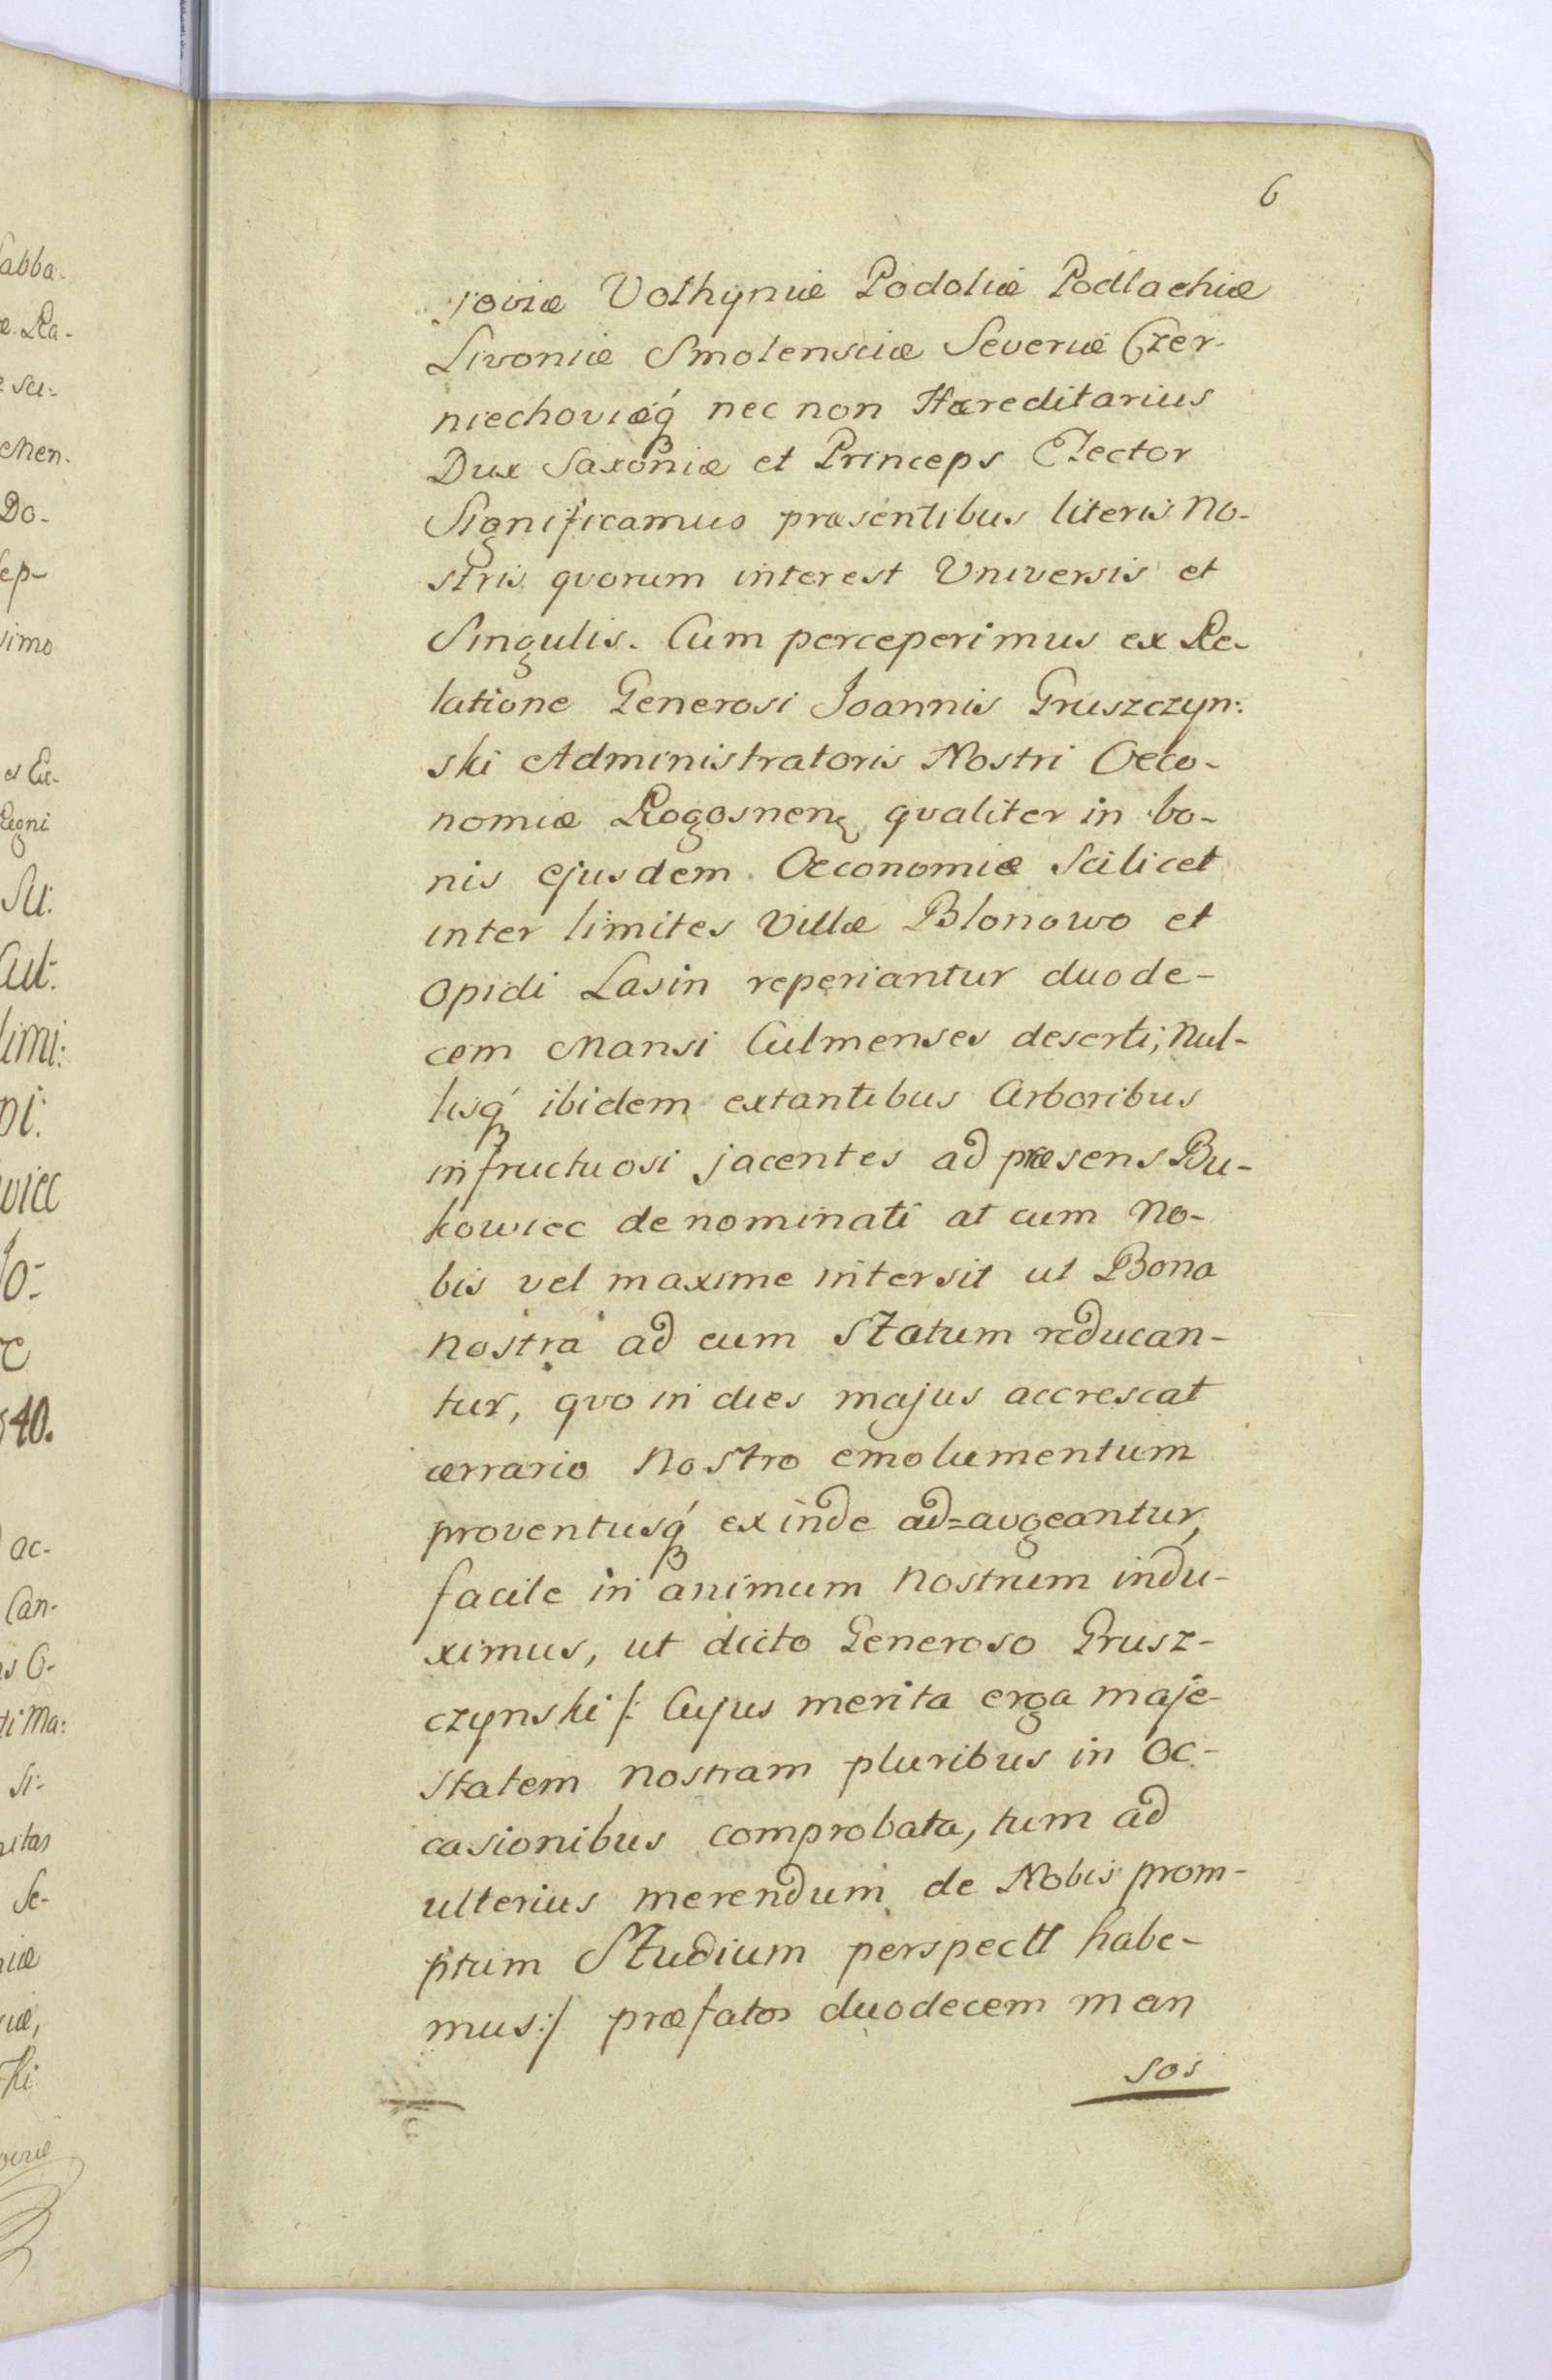 6
joviæ Volhyniæ Podoliæ Podlachiæ
Livoniæ Smolensciæ Severiæ Czer-
niechoviæq́ nec non Hæreditarius
Dux Saxoniæ et Princeps Elector
Significamus præsentibus literis No-
stris quorum interest Universis et
Singulis. Cum perceperimus ex Re-
latione Generosi Joannis Gruszczyn:
ski Administratoris Nostri Oeco-
nomiæ Rogosnen qvaliter in bo-
nis ejusdem Oeconomiæ Scilicet
inter limites Villæ Blonowo et
opidi Lasin reperiantur duode-
cem Mansi Culmenses deserti, Nul-
lisq́ ibidem extantibus Arboribus
infructuosi jacentes ad præsens Bu-
kowiec denominati at cum No-
bis vel maxime intersit ut Bona
nostra ad eum Statum reducan-
tur, qvo in dies majus accrescat
ærrario Nostro emolumentum
proventusq́ exinde ad=avgeantur,
facile in animum Nostrum indu-
ximus, ut dicto Generoso Grusz-
czynski /: Cujus merita erga maje-
statem nostram pluribus in Oc-
casionibus comprobata, tum ad
ulterius merendum de Nobis prom-
ptum Studium perspectt habe-
mus:/ præfatos duodecem man
sos
abba-
æ. Ra-
Men.
Do-
Sep-
simo
Regni
Su:
Cul:
limi:
ni:
wiec
Jo-
540.
ac-
Can-
ti Ma:
si-
Se-